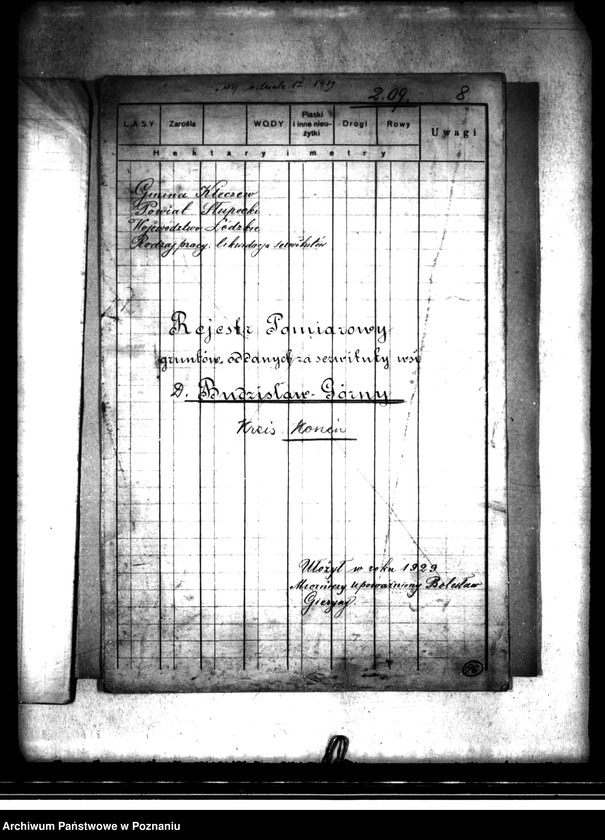 2.09. 8
LASY Zarośla WODY Piaski i inne nieużytki Drogi Rowy Uwagi
Hektary i metry
Gmina Kleczew
Powiat Słupecki
Województwo Łódzkie
Rodzaj pracy: likwidacja serwitutów
Rejestr Pomiarowy
gruntów oddanych za serwituty wsi
D. Budzisław-Górny
Kreis Konin
Ułożył w roku 1929
Mierniczy upoważniony Bolesław
Archiwum Państwowe w Poznaniu